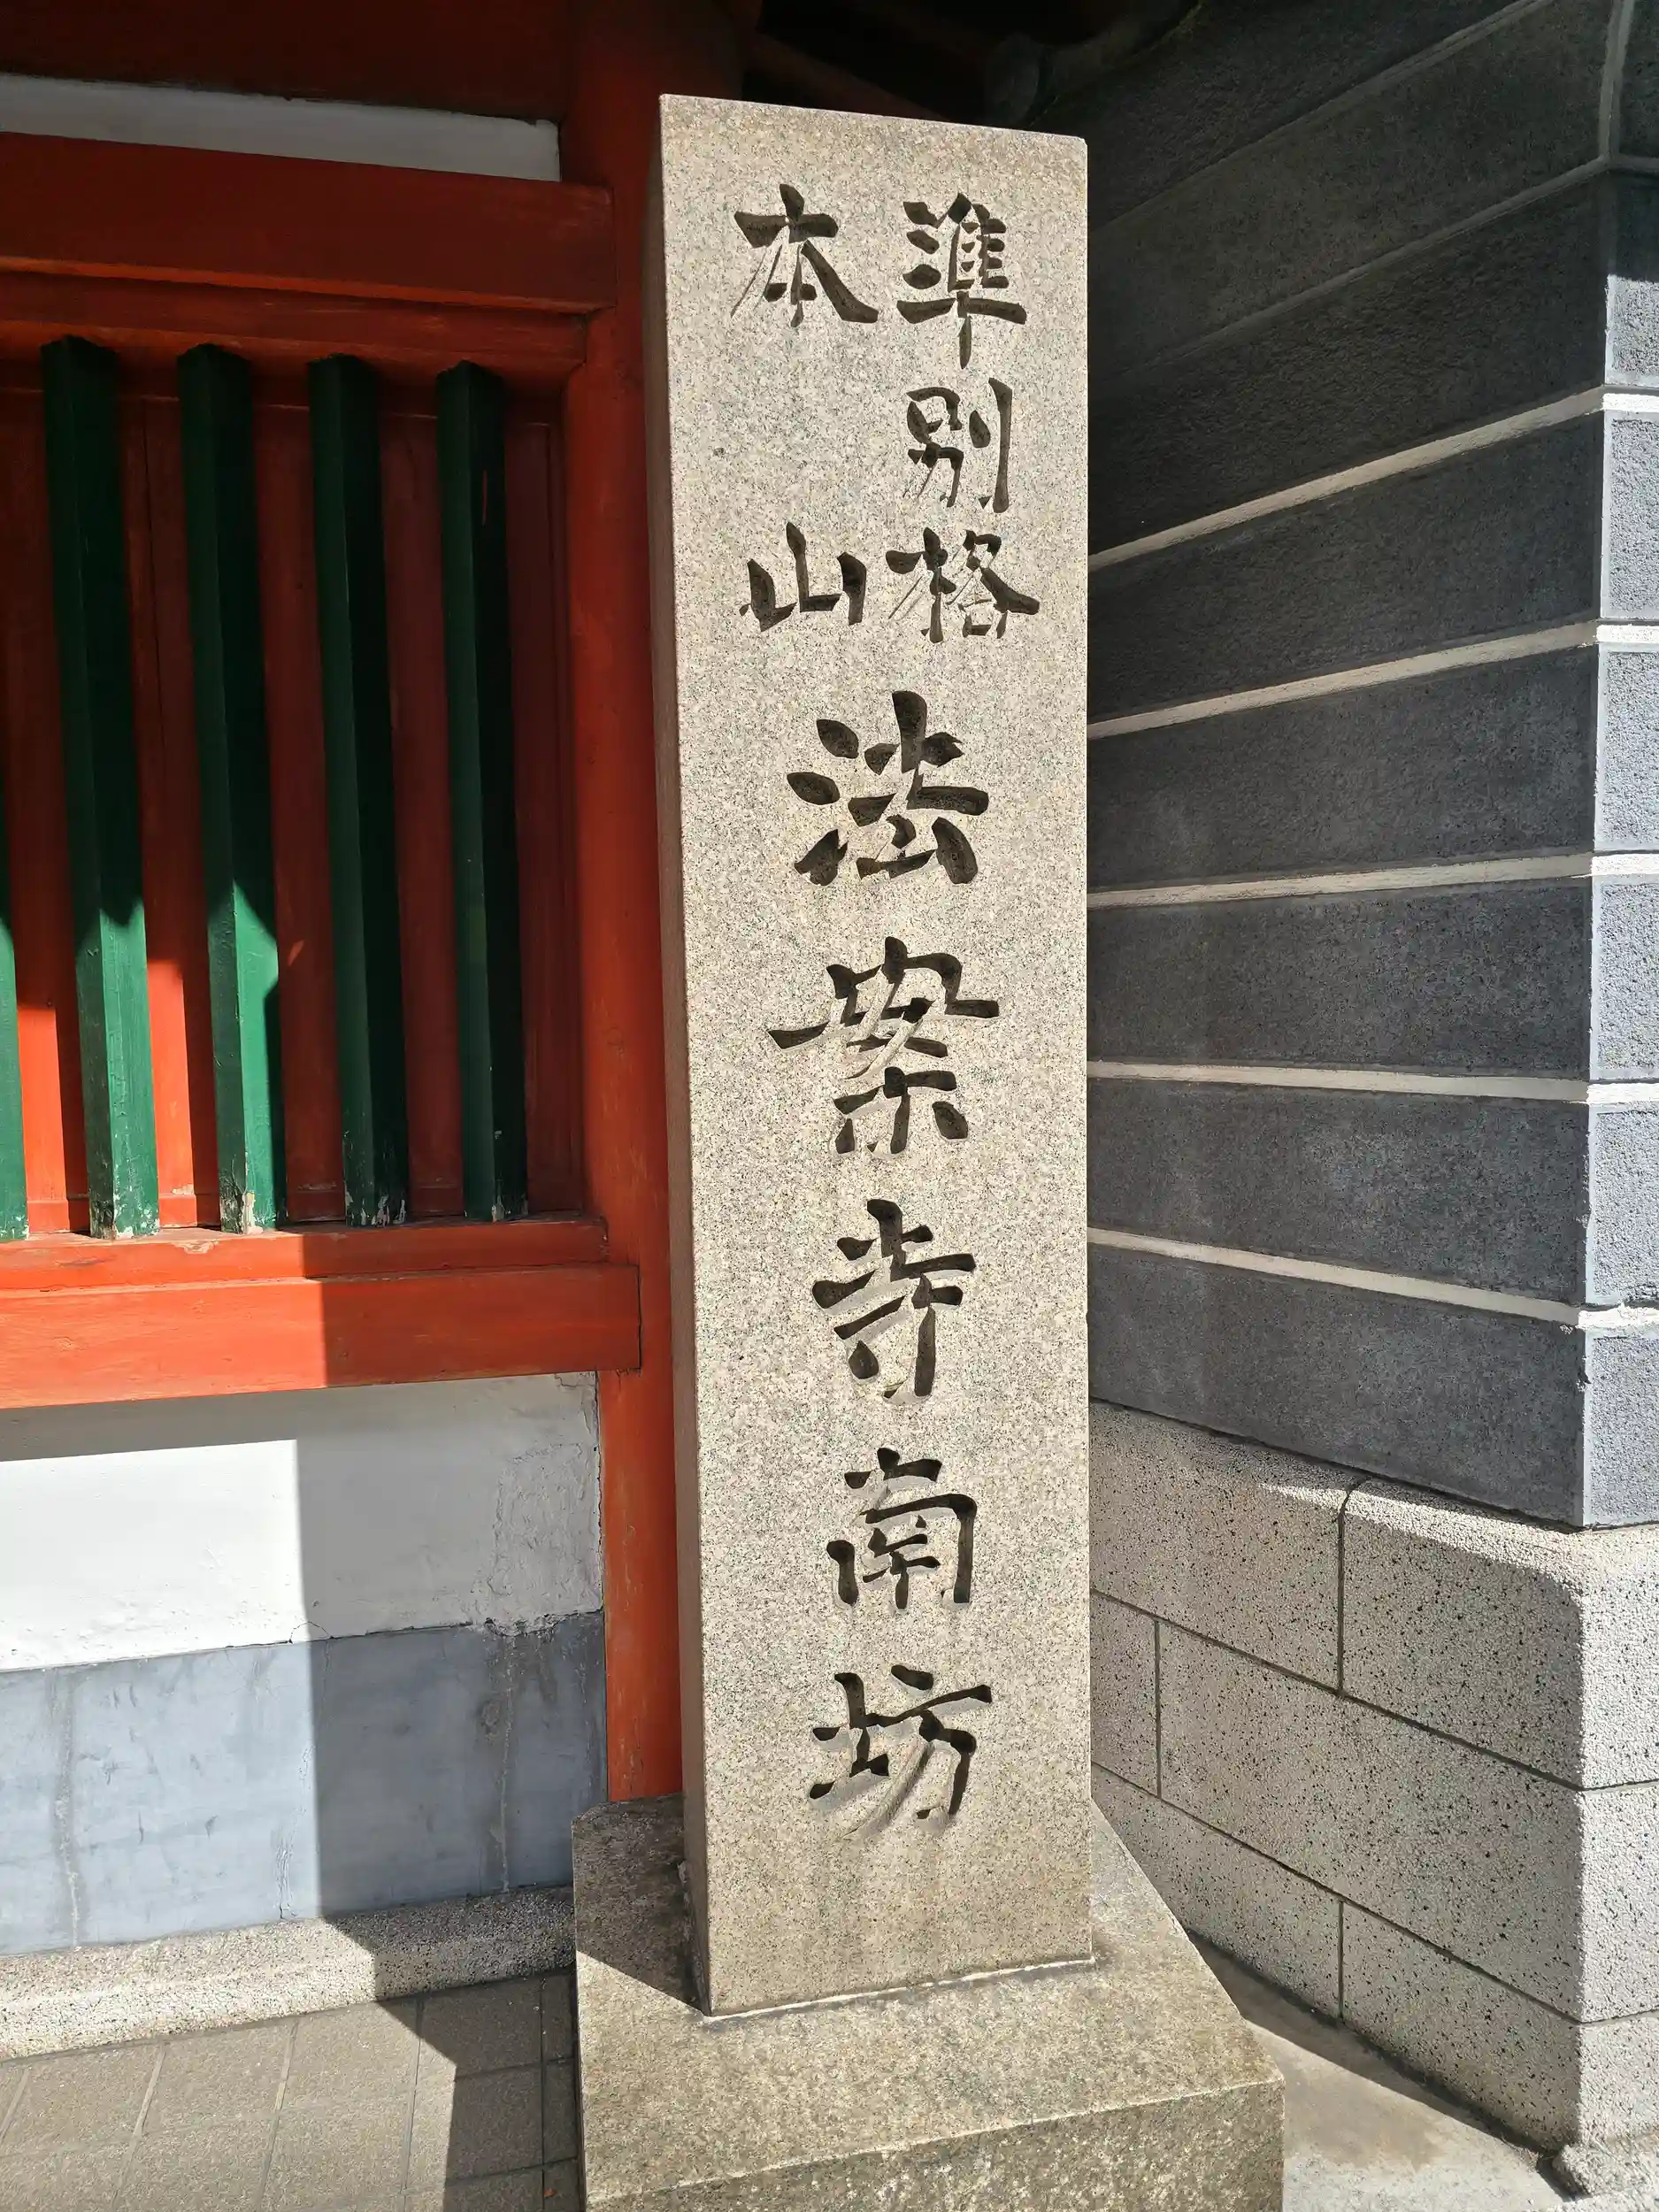 準別格
本山
法案寺南坊